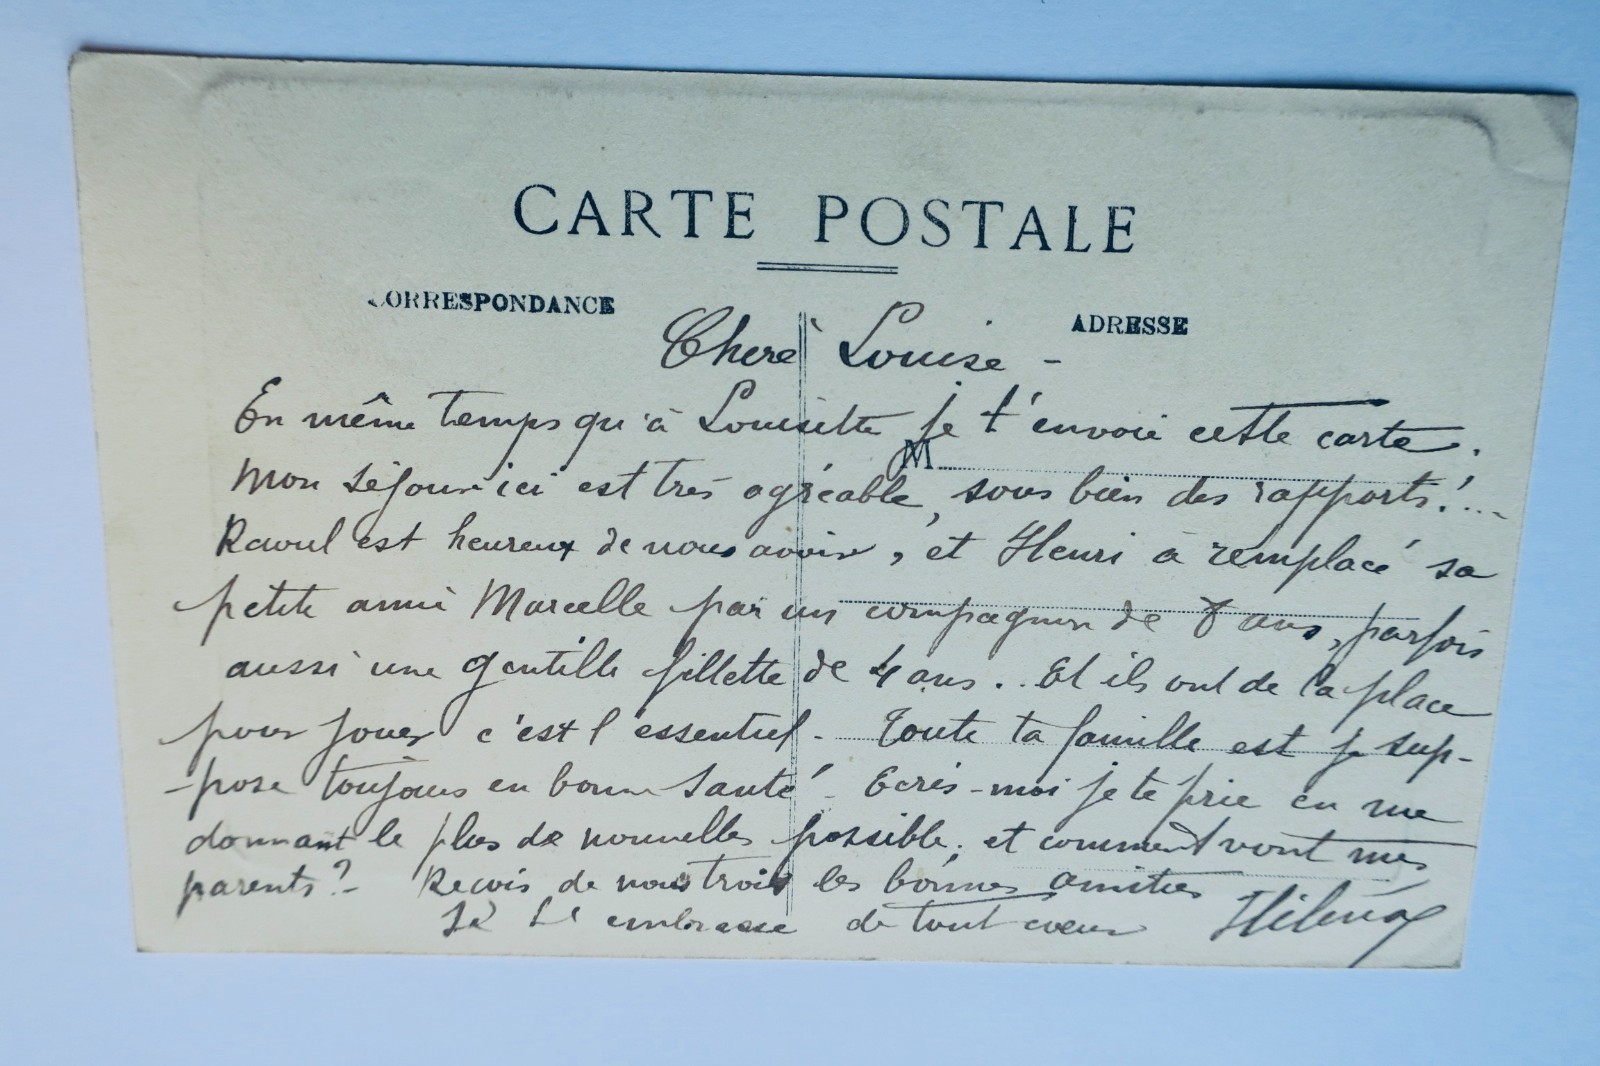 CARTE POSTALE
CORRESPONDANCE
ADRESSE
Chère Louise -
En même temps qu'à Louisette je t'envoie cette carte.
M
Mon séjour ici est très agréable, sous bien des rapports!...
Raoul est heureux de nous avoir, et Henri à remplacé sa
petite amie Marcelle par un compagnon de 8 ans, parfois
aussi une gentille fillette de 4 ans.. Et ils ont de la place
pour jouer c'est l'essentiel - Toute ta famille est je sup-
-pose toujours en bonne santé - Ecris-moi je te prie en me
donnant le plus de nouvelles possible, et comment vont mes
parents? - Reçois de nous trois les bonnes amitiés
Je t'embrasse de tout coeur